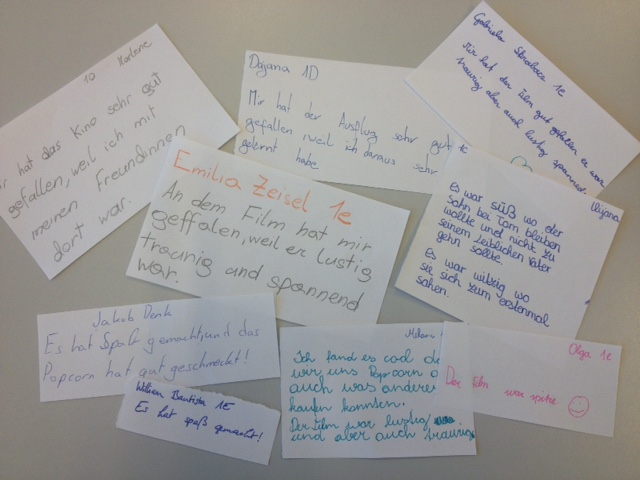 10 Marlene
hat das Kino sehr gut
gefallen, weil ich mit
meinen Freundinnen
dort war.
Dajana 1D
Mir hat der Ausflug sehr gut
gefallen, weil ich daraus sehr
gelernt habe
Gabriela 1e
Mir hat der Film gut gefallen er war
traurig aber auch lustig spannend.
Emilia Zeisel 1e
An dem Film hat mir
geffalen, weil er lustig
traurig und spannend
war.
Es war süß wo der
Sohn bei Tom bleiben
wollte und nicht zu
seinem leiblichen Vater
gehn sollte.
Es war witzig wo
sie sich zum erstenmal
sahen.
Jakob Denk
Es hat Spaß gemacht, und das
Popcorn hat gut geschmeckt!
William Bautista 1E
Es hat spaß gemacht!
Ich fand es cool
wir uns Popcorn
auch was andere
kaufen konnten.
Der Film war lustig
und aber auch traurig
Olga 1e
Der film war spitze